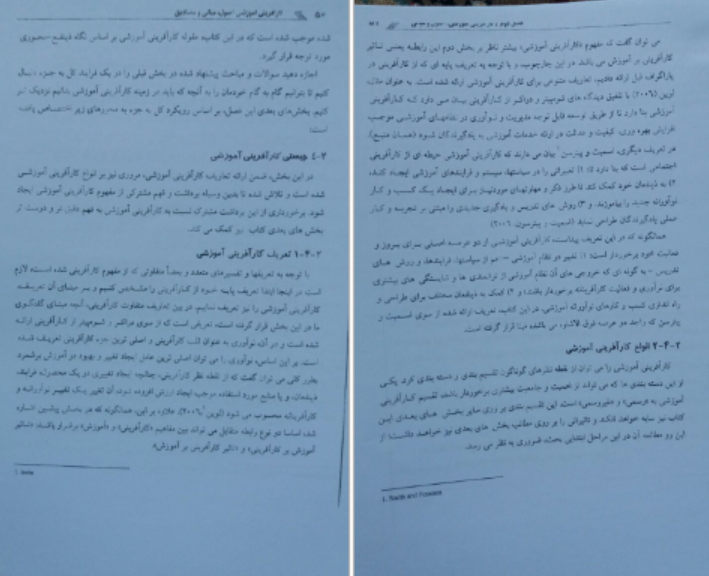 ۵۰ کارآفرینی آموزشی: اصول، مبانی و مصادیق
شده موجب شده است که در این کتاب، مقوله کارآفرینی آموزشی بر اساس نگاه
مورد توجه قرار گیرد.
اجازه دهید سوالات و مباحث پیشنهاد شده در بخش قبلی را در یک فرایند کل به جزء دنبال
کنیم تا بتوانیم گام به گام خودمان را به آنچه که باید در زمینه کارآفرینی آموزشی بدانیم نزدیک تر
کنیم. بخش‌های بعدی این فصل، بر اساس رویکرد کل به جزء به محورهای زیر اختصاص یافته
است:
۲-۴ چیستی کارآفرینی آموزشی
در این بخش، ضمن ارائه تعاریف کارآفرینی آموزشی، مروری نیز بر انواع کارآفرینی آموزشی
شده است و تلاش شده تا بدین وسیله برداشت و فهم مشترکی از مفهوم کارآفرینی آموزشی ایجاد
شود. برخورداری از این برداشت مشترک نسبت به کارآفرینی آموزشی به فهم دقیق تر و درست تر
بخش های بعدی کتاب نیز کمک می کند.
۲-۴-۱ تعریف کارآفرینی آموزشی
با توجه به تعریفها و تفسیرهای متعدد و بعضاً متفاوتی که از مفهوم کارآفرینی شده است، لازم
است در اینجا ابتدا تعریف پایه خود از کارآفرینی را مشخص کنیم و بر مبنای آن تعریف
کارآفرینی آموزشی را نیز تعریف نماییم. در بین تعاریف متفاوت کارآفرینی، آنچه مبنای گفتگوی
ما در این بخش قرار گرفته است، تعریفی است که از سوی دراکر و شومپیتر از کارآفرینی ارائه
شده است و در آن، نوآوری به عنوان قلب کارآفرینی و اصلی ترین جزء کارآفرینی تعریف شده
است. بر این اساس، نوآوری را می توان اصلی ترین عامل ایجاد تغییر و بهبود در آموزش برشمرد
بطور کلی می توان گفت که از نقطه نظر کارآفرینی، چنانچه ایجاد تغییری در یک محصول، فرایند،
ذینفعان، و یا منابع مورد استفاده موجب ایجاد ارزش افزوده شود، آن تغییر یک تغییر نوآورانه و
کارآفرینانه محسوب می شود. علاوه بر این، همانگونه که در بخش پیشین اشاره
شد، اساسا دو نوع رابطه متقابل می تواند بین مفاهیم «کارآفرینی» و «آموزش» برقرار باشد: «تاثیر
آموزش بر کارآفرینی» و «تاثیر کارآفرینی بر آموزش».
می توان گفت که مفهوم «کارآفرینی آموزشی» بیشتر ناظر بر بخش دوم این رابطه یعنی تاثیر
کارآفرینی بر آموزش می باشد. در این چهارچوب، و با توجه به تعریف پایه ای که از کارآفرینی در
پاراگراف قبل ارائه دادیم، تعاریف متنوعی برای کارآفرینی آموزشی ارائه شده است. به عنوان مثال،
(۲۰۰۶) با تلفیق دیدگاه های شومپیتر و دراکر از کارآفرینی بیان می دارد که کارآفرینی
آموزشی بنا دارد تا از طریق توسعه قابل توجه مدیریت و نوآوری در نظامهای آموزشی موجب
افزایش بهره وری، کیفیت و عدالت در ارائه خدمات آموزشی به یادگیرندگان شود (همان منبع).
در تعریف دیگری، اسمیت و پیترسن بیان می دارند که کارآفرینی آموزشی حیطه ای از کارآفرینی
اجتماعی است که بنا دارد تا: ۱) تغییراتی را در سیاستها، سیستم و فرایندهای آموزشی ایجاد کند،
۲) به ذینفعان خود کمک کند تا طرز فکر و مهارتهای موردنیاز برای ایجاد یک کسب و کار
نوآورانه جدید را بیاموزند، و ۳) روش های تدریس و یادگیری جدیدی را مبتنی بر تجربه و کار
عملی یادگیرندگان طراحی نماید (اسمیت و پیترسون، ۲۰۰۶).
همانگونه که در این تعریف پیداست، کارآفرینی آموزشی از دو عرصه اصلی برای بروز و
فعالیت خود برخوردار است: ۱) تغییر در نظام آموزشی – هم از سیاستها، فرایندها، و روش های
تدریس – به گونه ای که خروجی های آن نظام آموزشی از توانمندی ها و شایستگی های بیشتری
برای نوآوری و فعالیت کارآفرینانه برخوردار باشند، و ۲) کمک به ذینفعان مختلف برای طراحی و
راه اندازی کسب و کارهای نوآورانه آموزشی. در این کتاب، تعریف ارائه شده از سوی اسمیت و
پیترسن که واجد دو عرصه فوق الاشاره می باشد مبنا قرار گرفته است.
۲-۴-۲ انواع کارآفرینی آموزشی
کارآفرینی آموزشی را می توان از نقطه نظرهای گوناگون تقسیم بندی و دسته بندی کرد. یکی
از این دسته بندی ها که می تواند از اهمیت و جامعیت بیشتری برخوردار باشد، تقسیم کارآفرینی
آموزشی به «رسمی» و «غیررسمی» است. این تقسیم بندی بر روی سایر بخش های بعدی این
کتاب نیز سایه خواهد افکند و تاثیراتی را بر روی مطالب بخش های بعدی نیز خواهد داشت؛ از
این رو مطالعه آن در این مراحل ابتدایی بحث، ضروری به نظر می رسد.